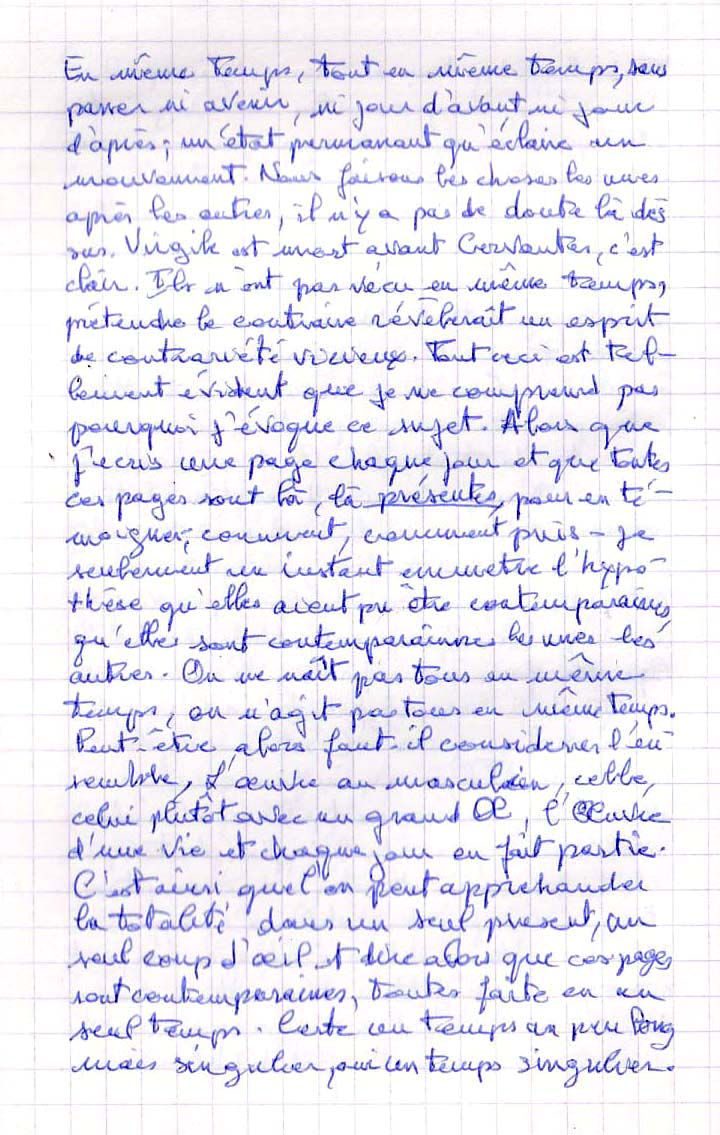 En même temps, tout en même temps, sans
passer ni avenir, ni jour d'avant ni jour
d'après ; un état permanant qu'éclaire un
mouvement. Nous faisons les choses les unes
après les autres, il n'y a pas de doute là dès
sus. Virgile est mort avant Cervantes, c'est
clair. Ils n'ont pas vécu en même temps,
prétendre le contraire révèlerait un esprit
de contrariété vicieux. Tout ceci est tel-
lement évident que je ne comprend pas
pourquoi j'évoque ce sujet. Alors que
j'ecris une page chaque jour et que toutes
ces pages sont là, là présentes, pour en té-
moigner, comment, comment puis-je
seulement un instant emmetre l'hypo-
thèse qu'elles aient pu être contemporaines,
qu'elles sont contemporaines les unes les
autres. On ne naît pas tous en même
temps, on n'agit pas tous en même temps.
Peut-être alors faut-il considerer l'en
semble, l'œuvre au masculin, celle,
celui plutôt avec un grand Œ, l'Œuvre
d'une vie et chaque jour en fait partie.
C'est ainsi que l'on peut apprehender
la totalité dans un seul present, un
seul coup d'œil et dire alors que ces pages
sont contemporaines, toutes faite en un
seul temps. Certe un temps un peu long
mais singulier, oui un temps singulier.